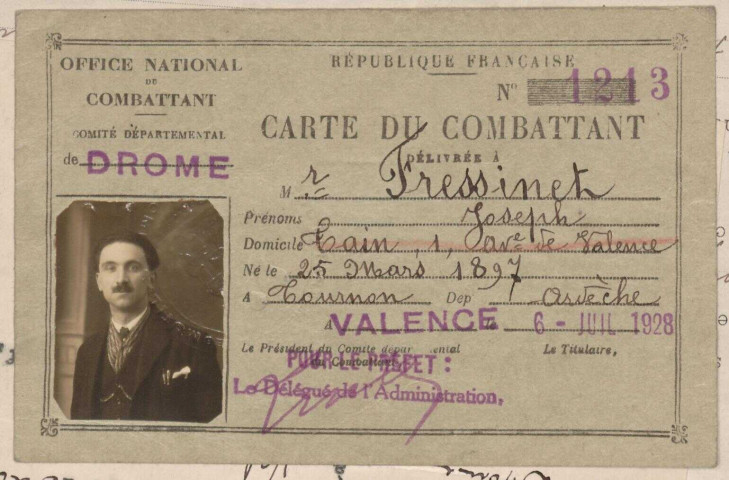 OFFICE NATIONAL
DU
COMBATTANT
COMITÉ DÉPARTEMENTAL
de DROME
RÉPUBLIQUE FRANÇAISE
N° 1213
CARTE DU COMBATTANT
DÉLIVRÉE À
M r Fressinet
Prénoms Joseph
Domicile Tain, 1, ave de Valence
Né le 25 Mars 1897
A Tournon Dep Ardèche
A VALENCE le 6 - JUIL 1928
Le Président du Comité départemental
du Combattant
Le Titulaire,
POUR LE PREFET :
Le Délégué de l'Administration,